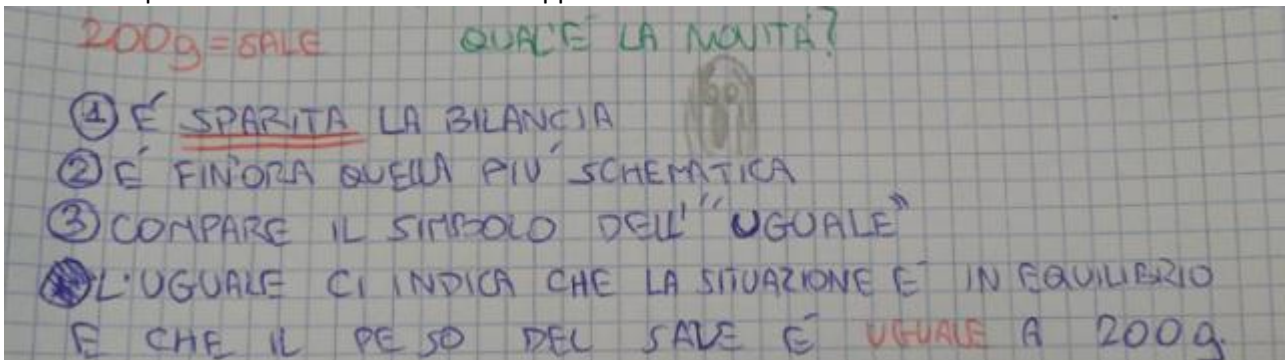 200g = SALE QUAL'È LA NOVITÁ?
① É SPARITA LA BILANCIA
② É FIN'ORA QUELLA PIÚ SCHEMATICA
③ COMPARE IL SIMBOLO DELL' "UGUALE"
L'UGUALE CI INDICA CHE LA SITUAZIONE É IN EQUILIBRIO
E CHE IL PESO DEL SALE É UGUALE A 200g.